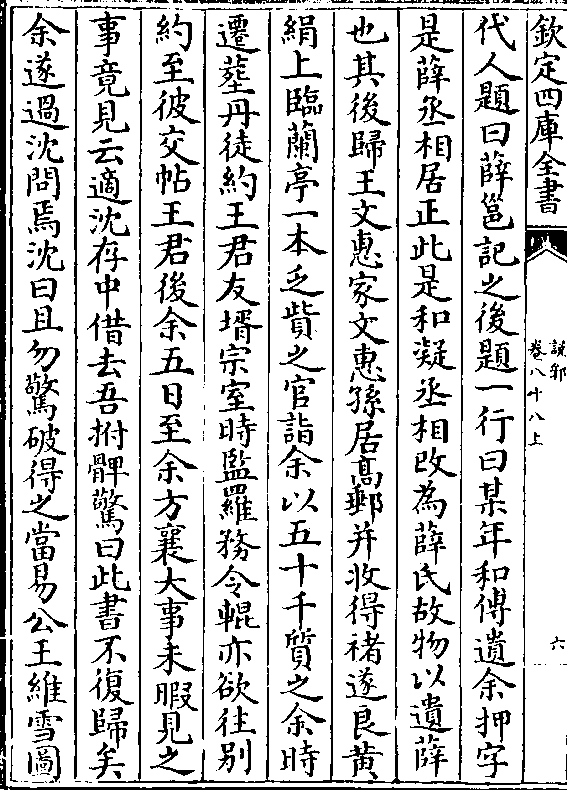 欽定四庫全書
說郛
卷八十八上
六
代人題曰薛邕記之後題一行曰某年和傅遺余押字
是薛丞相居正此是和凝丞相改為薛氏故物以遺薛
也其後歸王文惠家文惠孫居髙郵并收得褚遂良黄
絹上臨蘭亭一本乏貲之官詣余以五十千質之余時
遷塟丹徒約王君友壻宗室時監羅務令輥亦欲往别
約至彼交帖王君後余五日至余方襄大事未暇見之
事竟見云適沈存中借去吾拊髀驚曰此書不復歸矣
余遂過沈問焉沈曰且勿驚破得之當易公王維雪圖